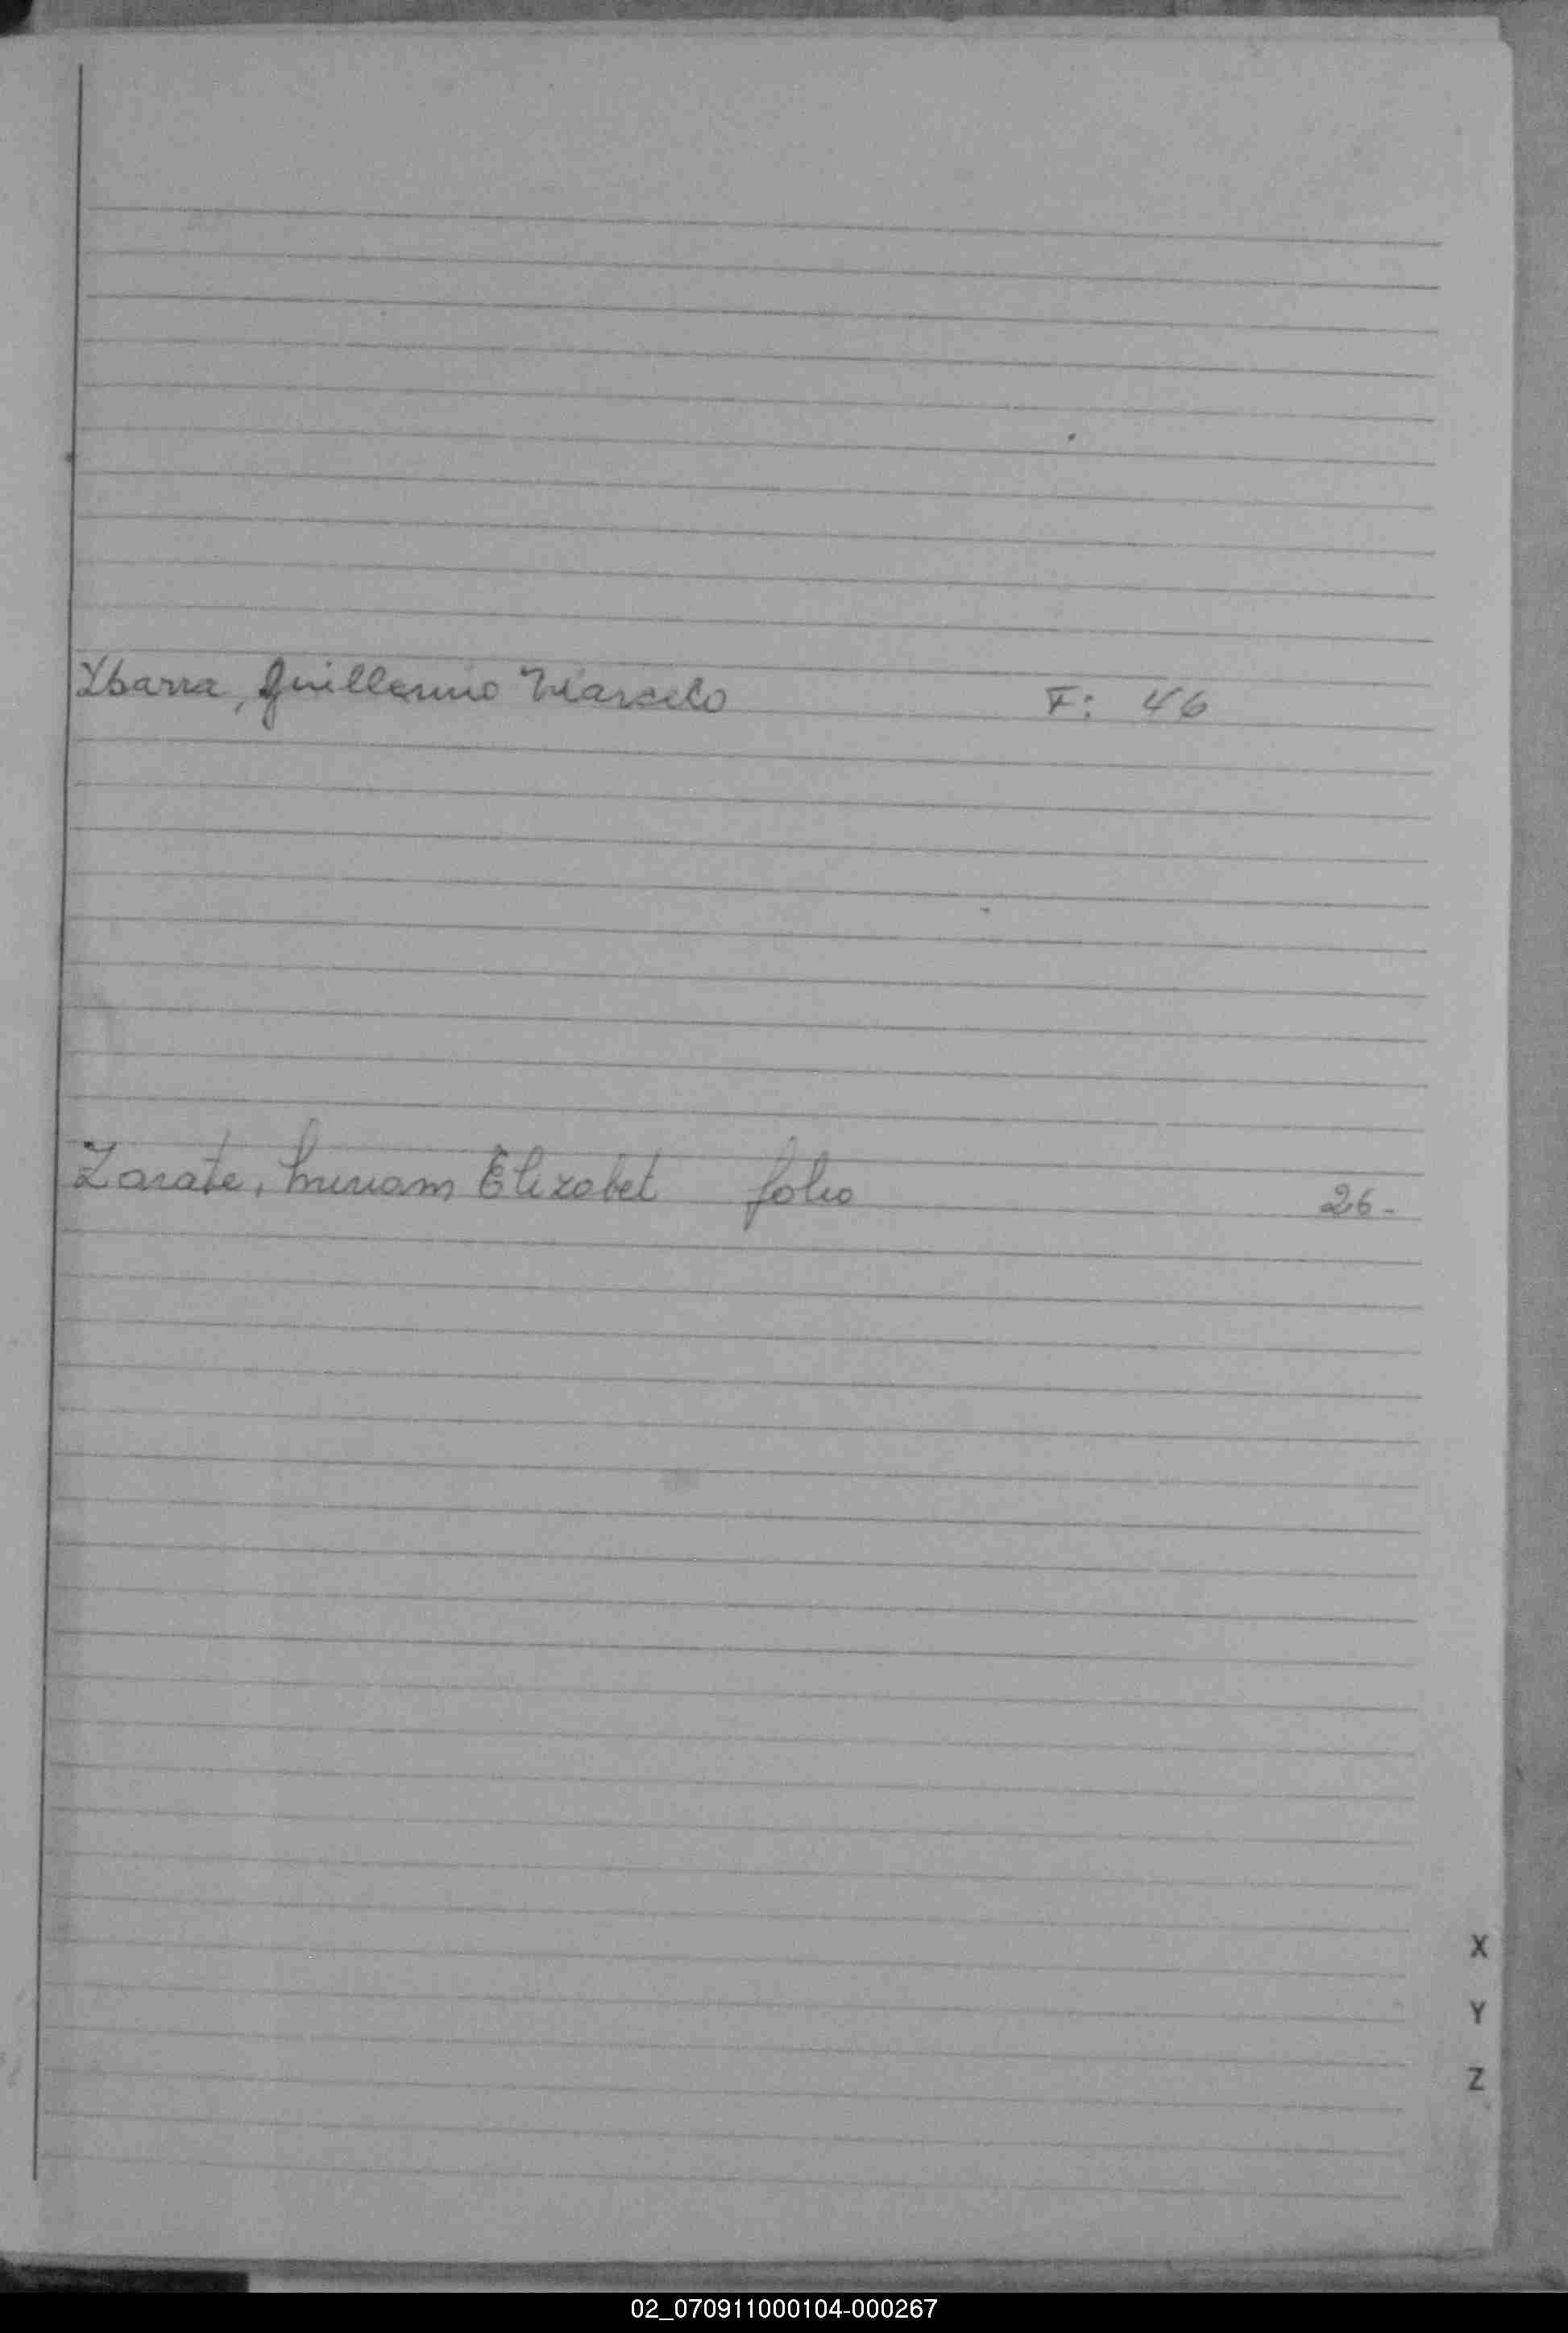 Ybarra, Guillermo Marcelo F: 46
Zarate, Miriam Elizabet folio 26-
X
Y
Z
02_070911000104-000267